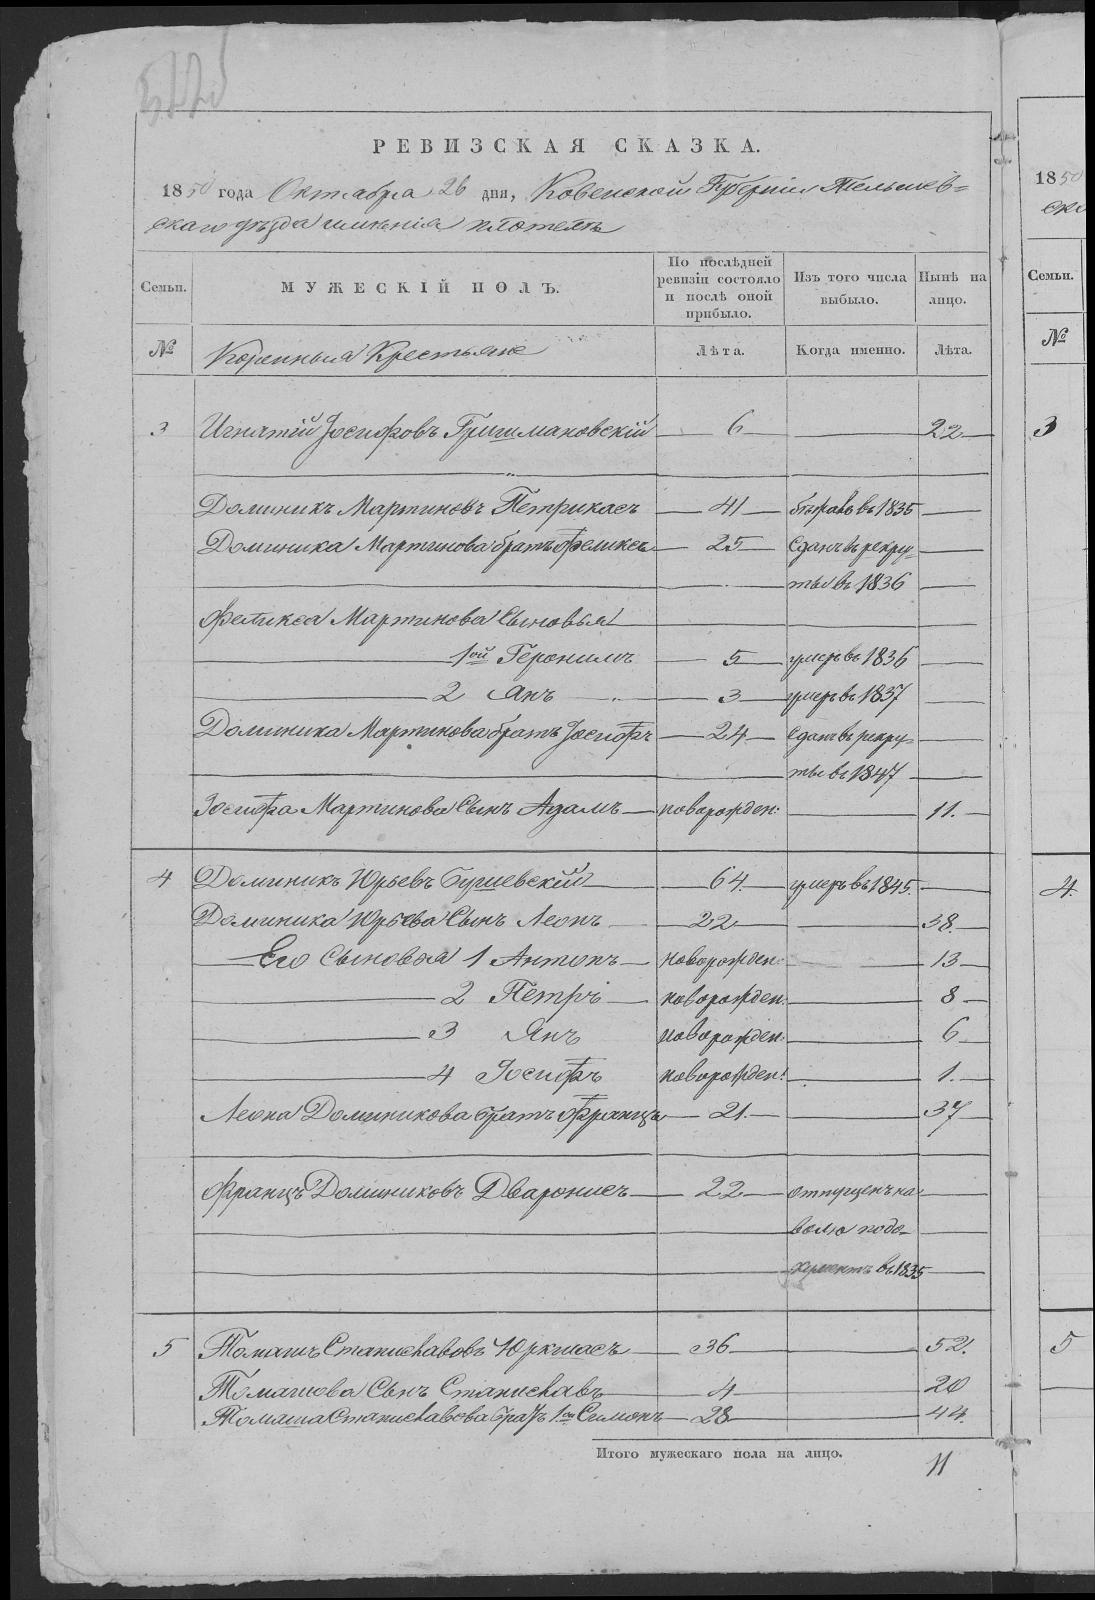 РЕВИЗСКАЯ СКАЗКА.
1850 года Октября 26 дня, Ковенской Губерніи Тельшев=
скаго уѣзда имѣнія Плотель
Семьи.
МУЖЕСКІЙ ПОЛЪ.
По послѣдней ревизіи состояло и послѣ оной прибыло.
Изъ того числа выбыло.
Нынѣ на лицо.
№ Коренныя Крестьяне Лѣта. Когда именно. Лѣта.
3 Игнатій Іосифовъ Гришмановскій 6 22
Доминикъ Мартиновъ Петрикасъ 41 въ 1835
Доминика Мартинова братъ Феликсъ 25 Сданъ въ рекру-
ты въ 1836
Феликса Мартинова Сыновья
1ой Геронимъ 5 умеръ въ 1836
2 Янъ 3 умеръ въ 1837
Доминика Мартинова братъ Іосифъ 24 Сданъ въ рекру-
ты въ 1847
Іосифа Мартинова Сынъ Адамъ новорожден: 11.
4 Доминикъ Юрьевъ Бушевскій 64. умеръ въ 1845.
Доминика Юрьева Сынъ Леонъ 22 38.
Его Сыновья 1 Антонъ новорожден: 13
2 Петръ новорожден: 8
3 Янъ новорожден: 6
4 Іосифъ новорожден: 1.
Леона Доминикова братъ Францъ 21. 37
Францъ Доминиковъ Дваронисъ 22 отпущенъ на
волю по до-
кументъ въ 1835
5 Томашъ Станиславовъ Юркшасъ 36 52.
Томашова Сынъ Станиславъ 4 20
Томаша Станиславова братъ 1ой Симонъ 28 44.
Итого мужескаго пола на лицо. 11
1850
ска
Семьи.
№
3
4.
5